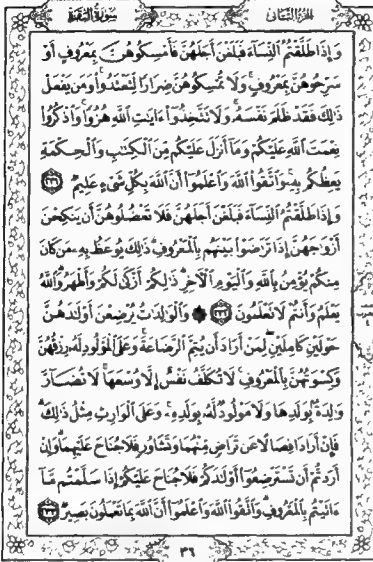 الجزء الثاني
سورة البقرة
وَإِذَا طَلَّقْتُمُ النِّسَآءَ فَبَلَغْنَ أَجَلَهُنَّ فَأَمْسِكُوهُنَّ بِمَعْرُوفٍ أَوْ
سَرِّحُوهُنَّ بِمَعْرُوفٍ وَلَا تُمْسِكُوهُنَّ ضِرَارًا لِّتَعْتَدُوا وَمَن يَفْعَلْ
ذَٰلِكَ فَقَدْ ظَلَمَ نَفْسَهُ وَلَا تَتَّخِذُوٓا ءَايَٰتِ اللَّهِ هُزُوًا وَاذْكُرُوا
نِعْمَتَ اللَّهِ عَلَيْكُمْ وَمَآ أَنزَلَ عَلَيْكُم مِّنَ الْكِتَٰبِ وَالْحِكْمَةِ
يَعِظُكُم بِهِ وَاتَّقُوا اللَّهَ وَاعْلَمُوٓا أَنَّ اللَّهَ بِكُلِّ شَىْءٍ عَلِيمٌ
وَإِذَا طَلَّقْتُمُ النِّسَآءَ فَبَلَغْنَ أَجَلَهُنَّ فَلَا تَعْضُلُوهُنَّ أَن يَنكِحْنَ
أَزْوَٰجَهُنَّ إِذَا تَرَٰضَوْا بَيْنَهُم بِالْمَعْرُوفِ ذَٰلِكَ يُوعَظُ بِهِ مَن كَانَ
مِنكُمْ يُؤْمِنُ بِاللَّهِ وَالْيَوْمِ الْءَاخِرِ ذَٰلِكُمْ أَزْكَىٰ لَكُمْ وَأَطْهَرُ وَاللَّهُ
يَعْلَمُ وَأَنتُمْ لَا تَعْلَمُونَ وَالْوَٰلِدَٰتُ يُرْضِعْنَ أَوْلَٰدَهُنَّ
حَوْلَيْنِ كَامِلَيْنِ لِمَنْ أَرَادَ أَن يُتِمَّ الرَّضَاعَةَ وَعَلَى الْمَوْلُودِ لَهُ رِزْقُهُنَّ
وَكِسْوَتُهُنَّ بِالْمَعْرُوفِ لَا تُكَلَّفُ نَفْسٌ إِلَّا وُسْعَهَا لَا تُضَآرَّ
وَٰلِدَةٌ بِوَلَدِهَا وَلَا مَوْلُودٌ لَّهُ بِوَلَدِهِ وَعَلَى الْوَارِثِ مِثْلُ ذَٰلِكَ
فَإِنْ أَرَادَا فِصَالًا عَن تَرَاضٍ مِّنْهُمَا وَتَشَاوُرٍ فَلَا جُنَاحَ عَلَيْهِمَا وَإِنْ
أَرَدتُّمْ أَن تَسْتَرْضِعُوٓا أَوْلَٰدَكُمْ فَلَا جُنَاحَ عَلَيْكُمْ إِذَا سَلَّمْتُم مَّآ
ءَاتَيْتُم بِالْمَعْرُوفِ وَاتَّقُوا اللَّهَ وَاعْلَمُوٓا أَنَّ اللَّهَ بِمَا تَعْمَلُونَ بَصِيرٌ
٣٦